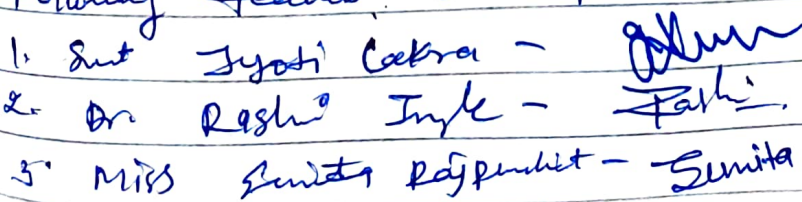 Following
1. Smt Jyoti Lakra -
2. Dr. Rashi Ingle - Rashi.
3. Miss Sunita Rajpurohit - Sunita